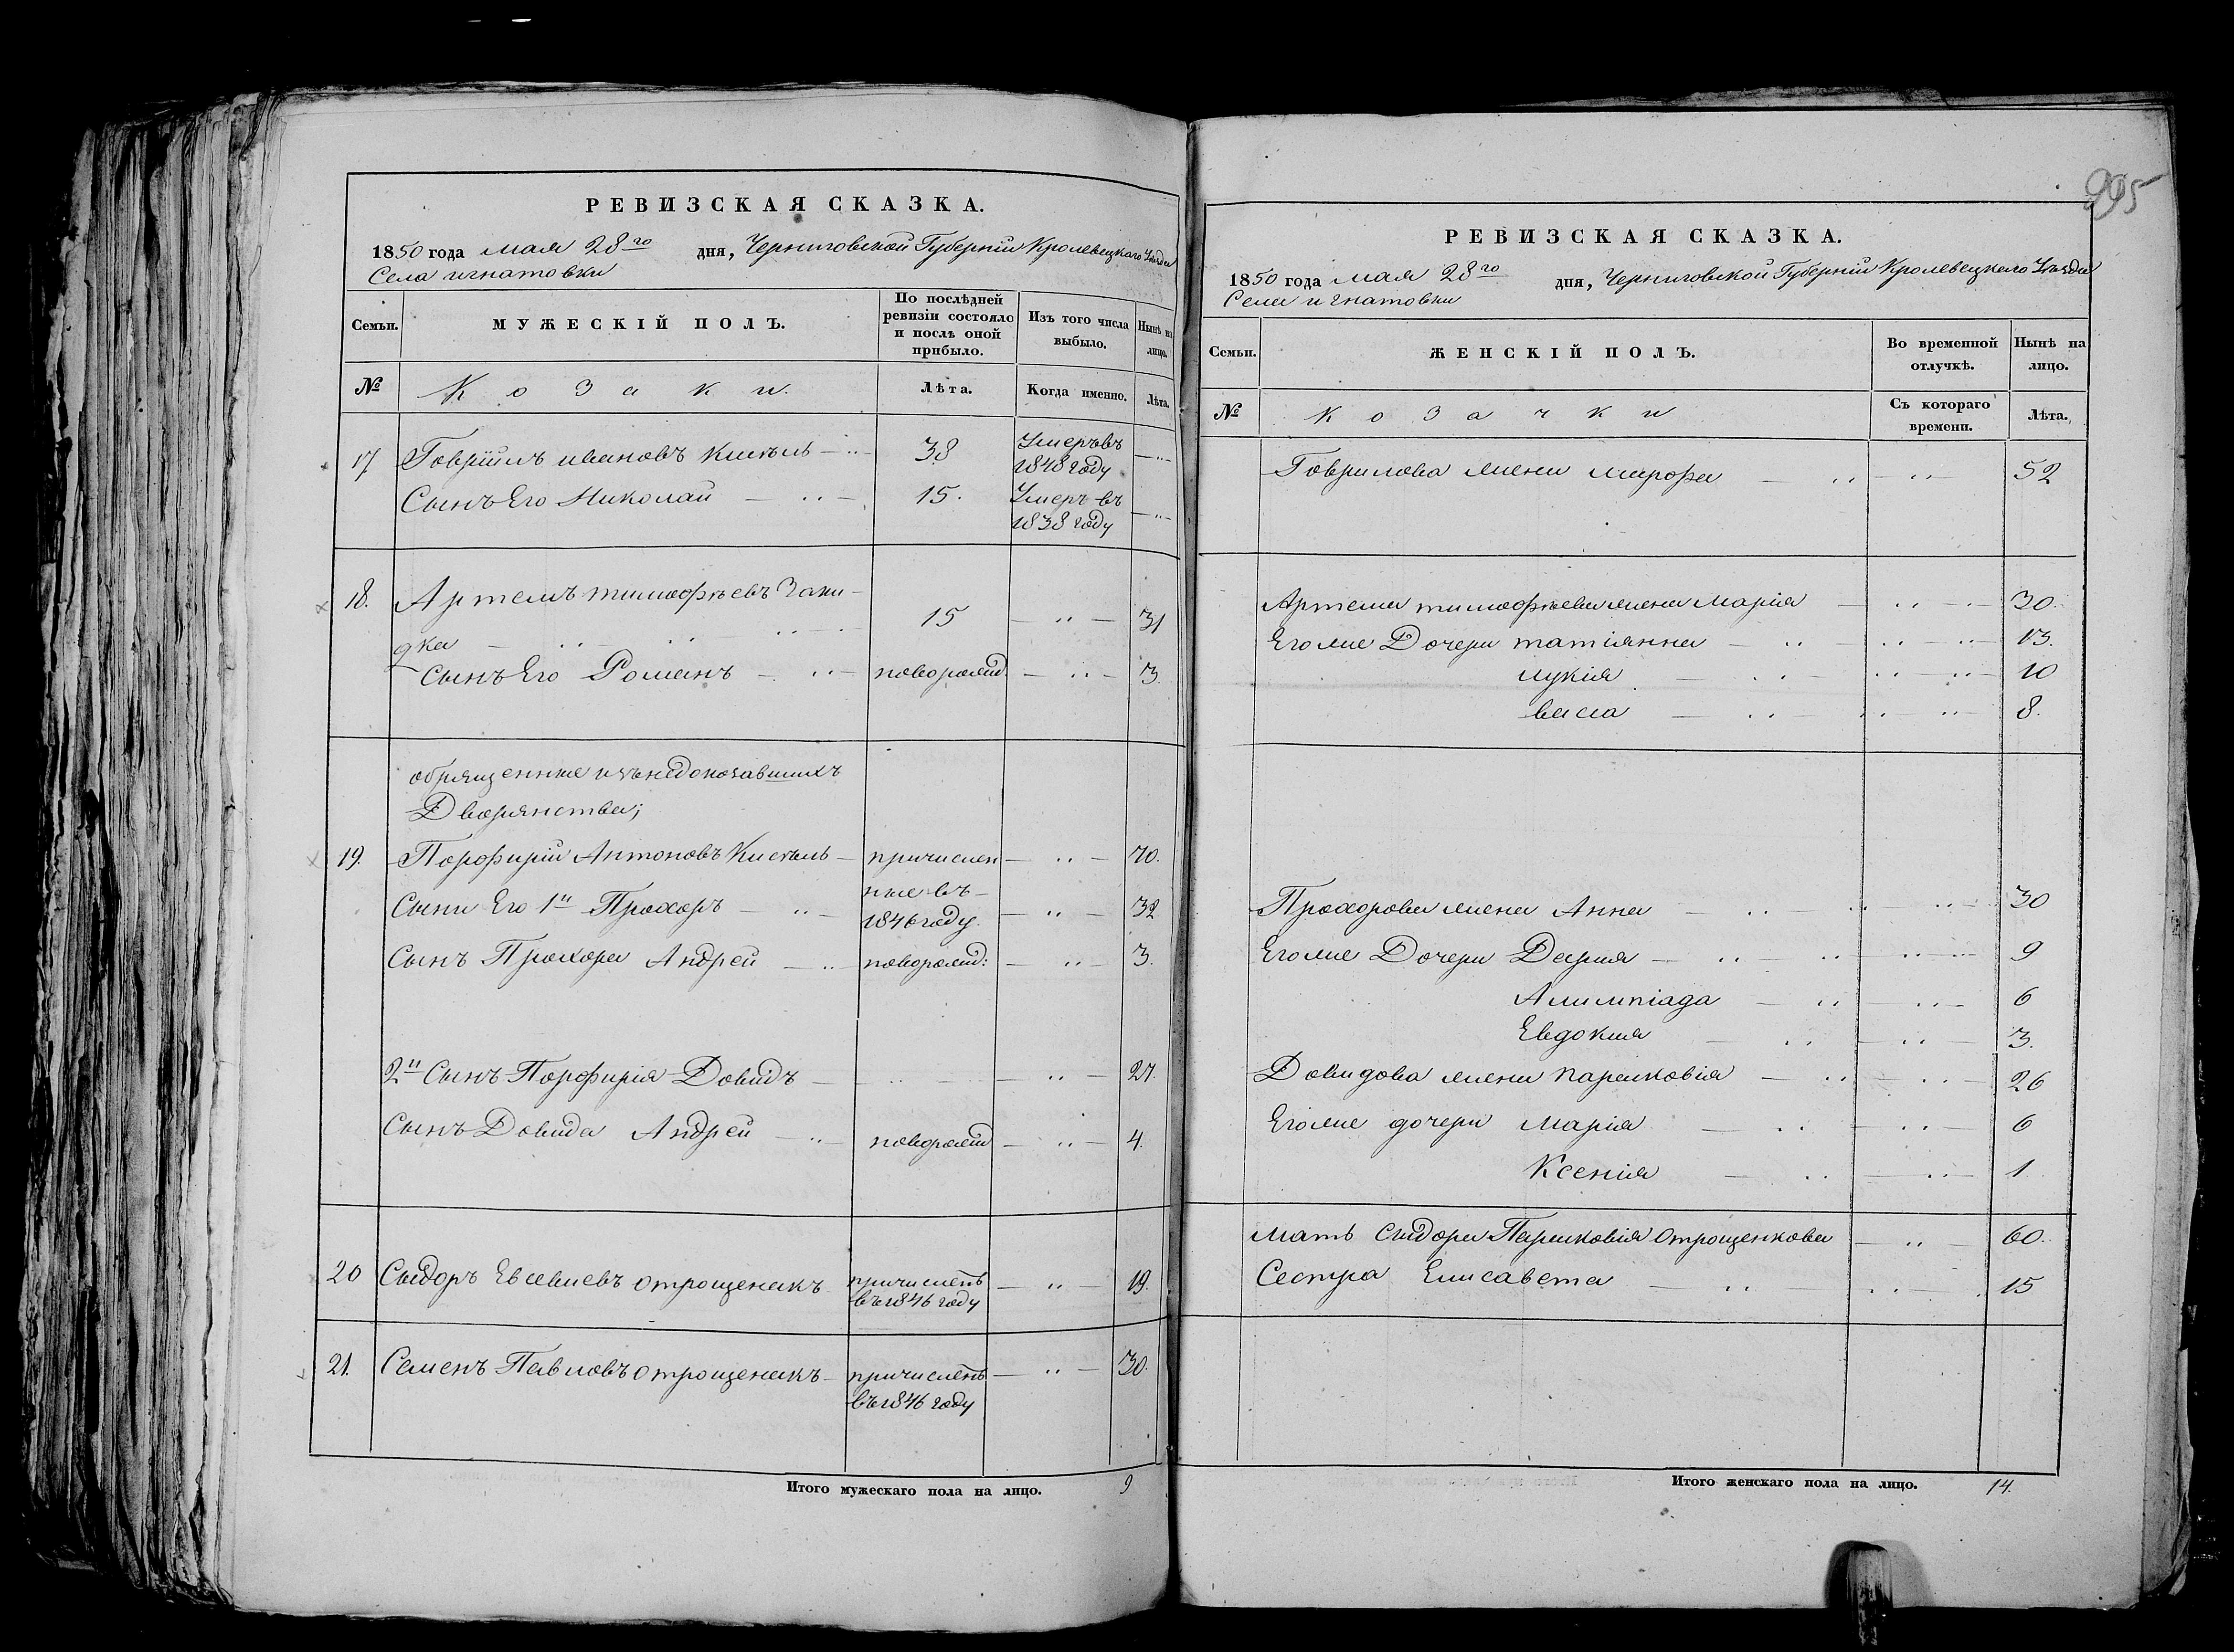 РЕВИЗСКАЯ СКАЗКА.
1850 года мая 28го дня, Черниговской Губерніи Кролевецкаго Уезда
Села игнатовки
Семьи.
МУЖЕСКІЙ ПОЛЪ.
По послѣдней ревизіи состояло и послѣ оной прибыло.
Изъ того числа выбыло.
Нынѣ на лицо.
№
Козаки.
Лѣта.
Когда именно.
Лѣта.
17 Говріилъ ивановъ Кисѣль 38 Умеръ въ
1848 году
Сынъ Его Николай 15. Умеръ въ
1838 году
18. Артемъ тимофѣевъ Заки-
дка 15 31
Сынъ Его Романъ новорожд. 3.
обращенные изънедоказавшихъ
Дворянства;
19. Порфирій Антоновъ Кисѣль причислен 70.
ные въ
Сыни Его 1й Прохоръ 1846 году. 32
Сынъ Прохора Андрей новорожд: 3.
2й Сынъ Порфирія Довидъ 27.
Сынъ Довида Андрей новорожд 4.
20 Сыдоръ Евсевиевъ Отрощенкъ причисленъ 19.
въ 1846 году
21. Семенъ Павловъ Отрощенкъ причисленъ 30.
въ 1846 году
Итого мужескаго пола на лицо. 9
995
РЕВИЗСКАЯ СКАЗКА.
1850 года мая 28го дня, Черниговской Губерніи Кролевецкаго Уезда
Села игнатовки
Семьи.
ЖЕНСКІЙ ПОЛЪ.
Во временной отлучкѣ.
Нынѣ на лицо.
№
Козачки
Съ котораго времени.
Лѣта.
Говрилова жена марфа 52
Артема тимофѣева жена Марія 30.
Его же Дочери татіянна 13.
лукія 10
васса 8.
Прохорова жена Анна 30
Его же Дочери Дарія 9
Алимпіада 6
Евдокия 3.
Довидова жена парасковія 26
Его же дочери Марія 6
Ксенія 1
мать Сыдора Парасковія Отрощенкова 60.
Сестра Елисавета 15
Итого женскаго пола на лицо. 14.